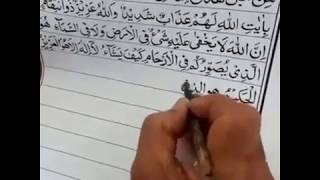 بِاٰيٰتِ اللّٰهِ لَهُمْ عَذَابٌ شَدِيْدٌ وَاللّٰهُ عَزِيْزٌ ذُو انْتِقَامٍ
اِنَّ اللّٰهَ لَا يَخْفٰى عَلَيْهِ شَيْءٌ فِي الْاَرْضِ وَلَا فِي السَّمَآءِ هُوَ
الَّذِيْ يُصَوِّرُكُمْ فِي الْاَرْحَامِ كَيْفَ يَشَآءُ لَآ اِلٰهَ اِلَّا هُوَ الْعَزِيْزُ
الْحَكِيْمُ هو الذی